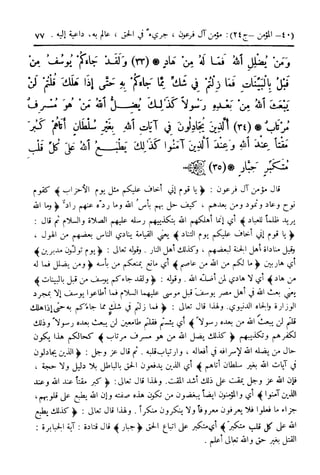 (٤٠- المؤمن - ج ٢٤): مؤمن آل فرعون ، جريء في الحق ، عالم به، داعية إليه . ٧٧
وَمَنْ يُضْلِلِ اللهُ فَمَا لَهُ مِنْ هَادٍ * (٣٣) وَلَقَدْ جَاءَكُمْ يُوسُفُ مِنْ
قَبْلُ بِالْبَيِّنَاتِ فَمَا زِلْتُمْ فِي شَكٍّ مِمَّا جَاءَكُمْ بِهِ حَتَّى إِذَا هَلَكَ قُلْتُمْ لَنْ
يَبْعَثَ اللهُ مِنْ بَعْدِهِ رَسُولاً كَذَلِكَ يُضِلُّ اللهُ مَنْ هُوَ مُسْرِفٌ
مُرْتَابٌ * (٣٤) الَّذِينَ يُجَادِلُونَ فِي آيَاتِ اللهِ بِغَيْرِ سُلْطَانٍ أَتَاهُمْ كَبُرَ
مَقْتاً عِنْدَ اللهِ وَعِنْدَ الَّذِينَ آمَنُوا كَذَلِكَ يَطْبَعُ اللهُ عَلَى كُلِّ قَلْبِ
مُتَكَبِّرٍ جَبَّارٍ * (٣٥)
قال مؤمن آل فرعون : ﴿ يا قوم إني أخاف عليكم مثل يوم الأحزاب ﴾ كقوم
نوح وعاد وثمود ومن بعدهم ، كيف حل بهم بأس الله وما رده عنهم راد ﴿ وما الله
يريد ظلماً للعباد ﴾ أي إنما أهلكهم الله بتكذيبهم رسله عليهم الصلاة والسلام ثم قال :
﴿ يا قوم إني أخاف عليكم يوم التناد ﴾ يعني القيامة ينادي الناس بعضهم من الهول ،
وقيل مناداة أهل الجنة لبعضهم ، وكذلك أهل النار . وقوله تعالى : ﴿ يوم تولّون مدبرين ﴾
أي هاربين ﴿ ما لكم من الله من عاصم ﴾ أي مانع يمنعكم من بأسه ﴿ ومن يضلل فما له
من هاد ﴾ أي لا هادي لمن أضلّه الله . وقوله : ﴿ ولقد جاءكم يوسف من قبل بالبينات ﴾
يعني بعث الله في أهل مصر يوسف قبل موسى عليهما السلام فما أطاعوا يوسف إلا بمجرد
الوزارة والجاه الدنيوي. ولهذا قال تعالى : ﴿ فما زلتم في شك مما جاءكم به حتى إذا هلك
قلتم لن يبعث الله من بعده رسولاً ﴾ أي يئستم فقلتم طامعين لن يبعث بعده رسولاً وذلك
لكفرهم وتكذيبهم ﴿ كذلك يضل الله من هو مسرف مرتاب ﴾ كحالكم هذا يكون
حال من يضله الله لإسرافه في أفعاله ، وارتياب قلبه . ثم قال عز وجل : ﴿ الذين يجادلون
في آيات الله بغير سلطان أتاهم ﴾ أي الذين يدفعون الحق بالباطل بلا دليل ولا حجة ،
فإن الله عز وجل يمقت على ذلك أشد المقت. ولهذا قال تعالى: ﴿ كبر مقتاً عند الله وعند
الذين آمنوا ﴾ أي والمؤمنون أيضاً يبغضون من تكون هذه صفته وإن الله يطبع على قلوبهم،
جزاء ما فعلوا فلا يعرفون معروفاً ولا ينكرون منكراً. ولهذا قال تعالى : ﴿ كذلك يطبع
الله على كل قلب متكبر ﴾ أي متكبر على اتباع الحق ﴿ جبار ﴾ قال قتادة : آية الجبابرة :
القتل بغير حق والله تعالى أعلم .